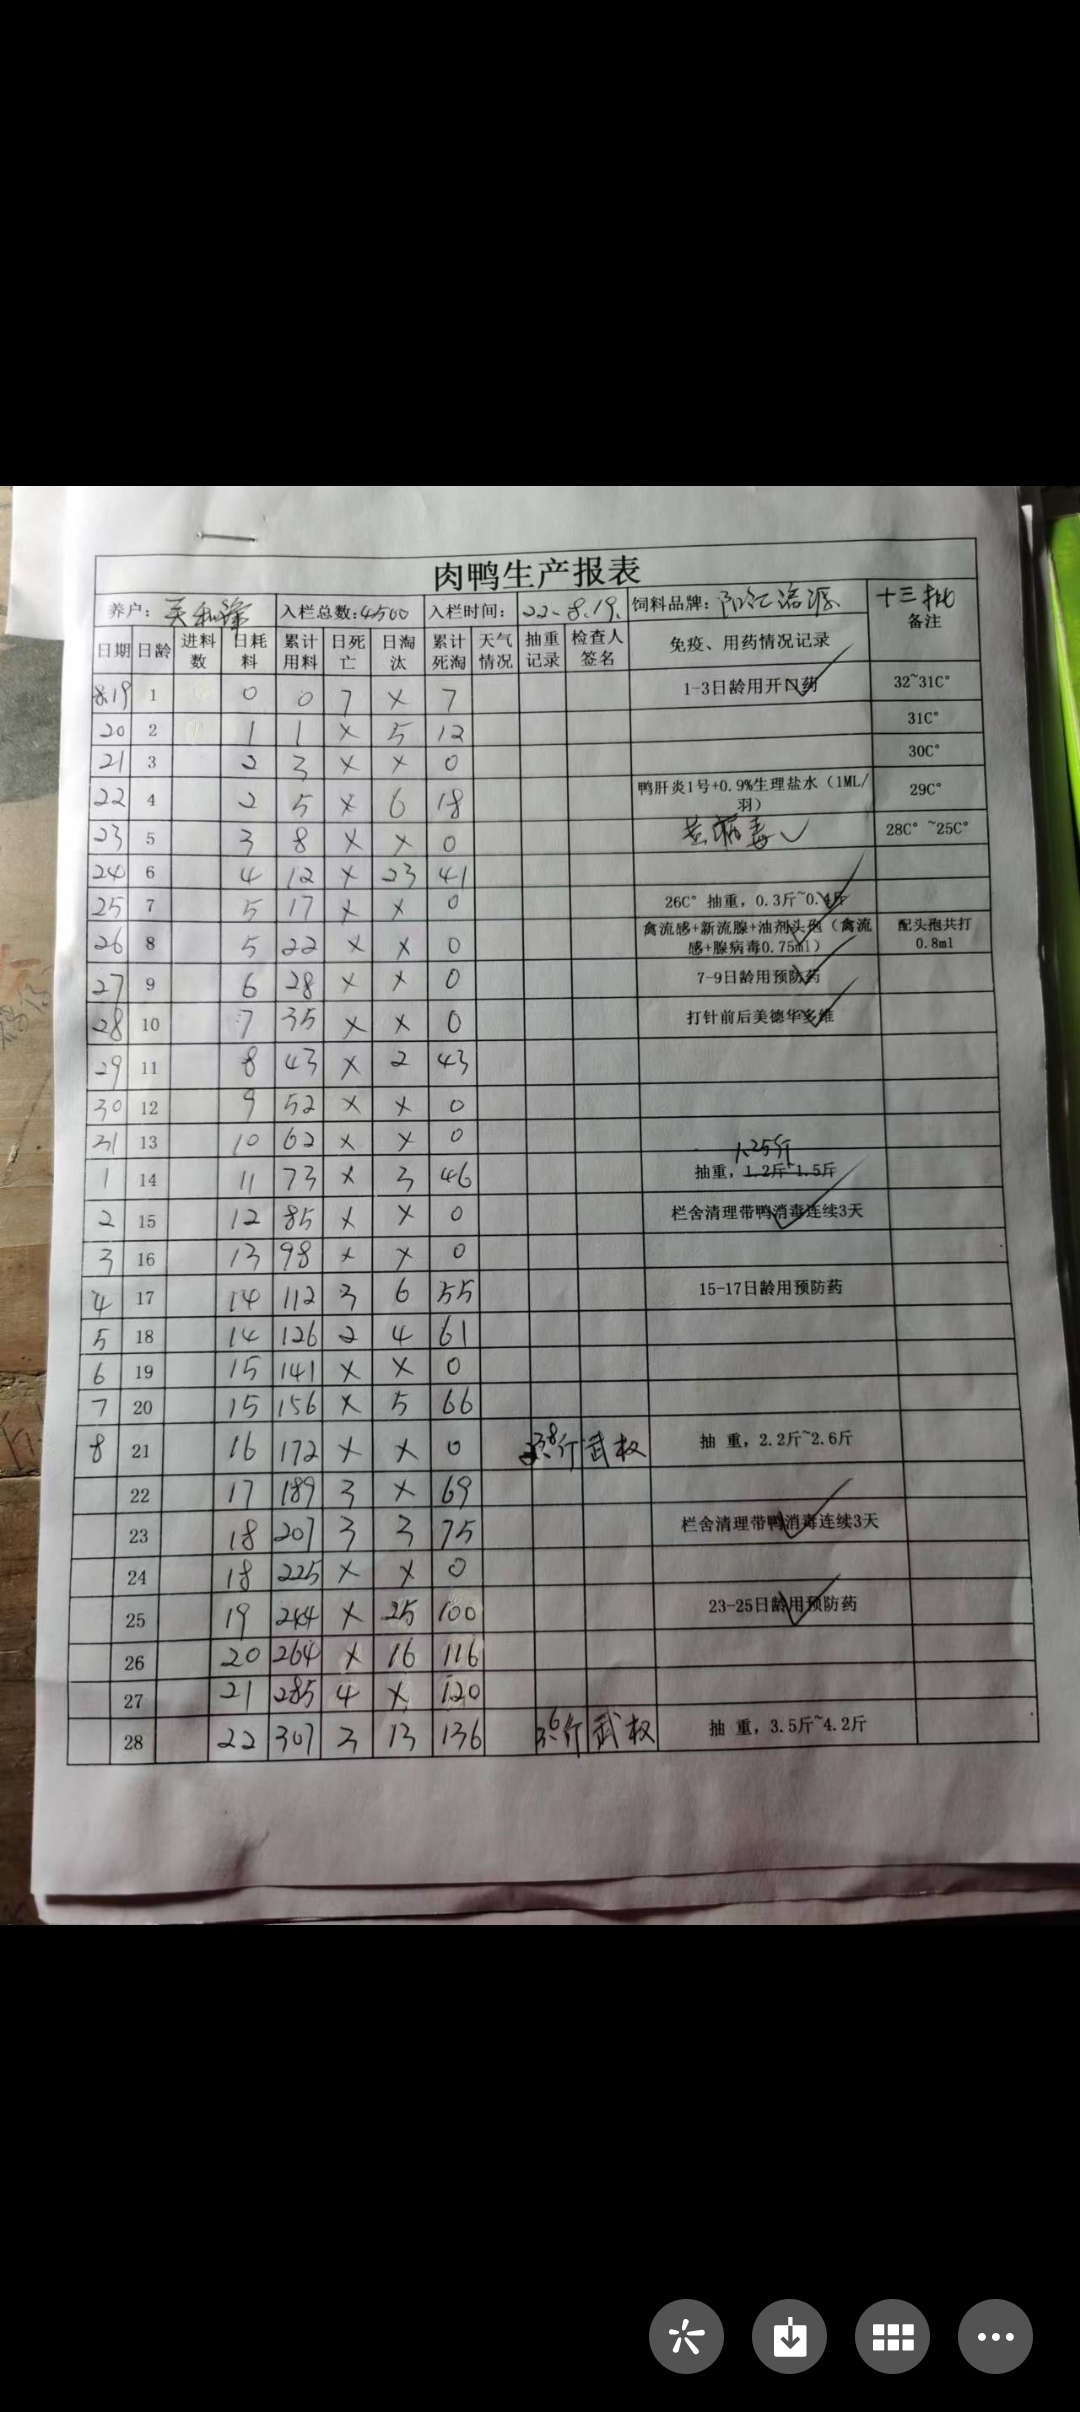 肉鸭生产报表
养户: 入栏总数:4500 入栏时间: 22-8.19. 饲料品牌: 十三批
备注
日期 日龄 进料数 日耗料 累计用料 日死亡 日淘汰 累计死淘 天气情况 抽重记录 检查人签名 免疫、用药情况记录
8.19 1 0 0 7 × 7 1-3日龄用开口药 32~31C°
20 2 1 1 × 5 12 31C°
21 3 2 3 × × 0 30C°
22 4 2 5 × 6 18 鸭肝炎1号+0.9%生理盐水（1ML/羽） 29C°
23 5 3 8 × × 0 病毒✓ 28C° ~25C°
24 6 4 12 × 23 41
25 7 5 17 × × 0 26C° 抽重, 0.3斤~0.4斤
26 8 5 22 × × 0 禽流感+新流腺+油剂头孢（禽流感+腺病毒0.75ml） 配头孢共打0.8ml
27 9 6 28 × × 0 7-9日龄用预防药
28 10 7 35 × × 0 打针前后美德华多维
29 11 8 43 × 2 43
30 12 9 52 × × 0
31 13 10 62 × × 0
1.25斤
1 14 11 73 × 3 46 抽重, 1.2斤~1.5斤
2 15 12 85 × × 0 栏舍清理带鸭消毒连续3天
3 16 13 98 × × 0
4 17 14 112 3 6 55 15-17日龄用预防药
5 18 14 126 2 4 61
6 19 15 141 × × 0
7 20 15 156 × 5 66
8 21 16 172 × × 0 武权 抽 重, 2.2斤~2.6斤
22 17 189 3 × 69
23 18 207 3 3 75 栏舍清理带鸭消毒连续3天
24 18 225 × × 0
25 19 244 × 25 100 23-25日龄用预防药
26 20 264 × 16 116
27 21 285 4 × 120
28 22 307 3 13 136 3.6斤 武权 抽 重, 3.5斤~4.2斤